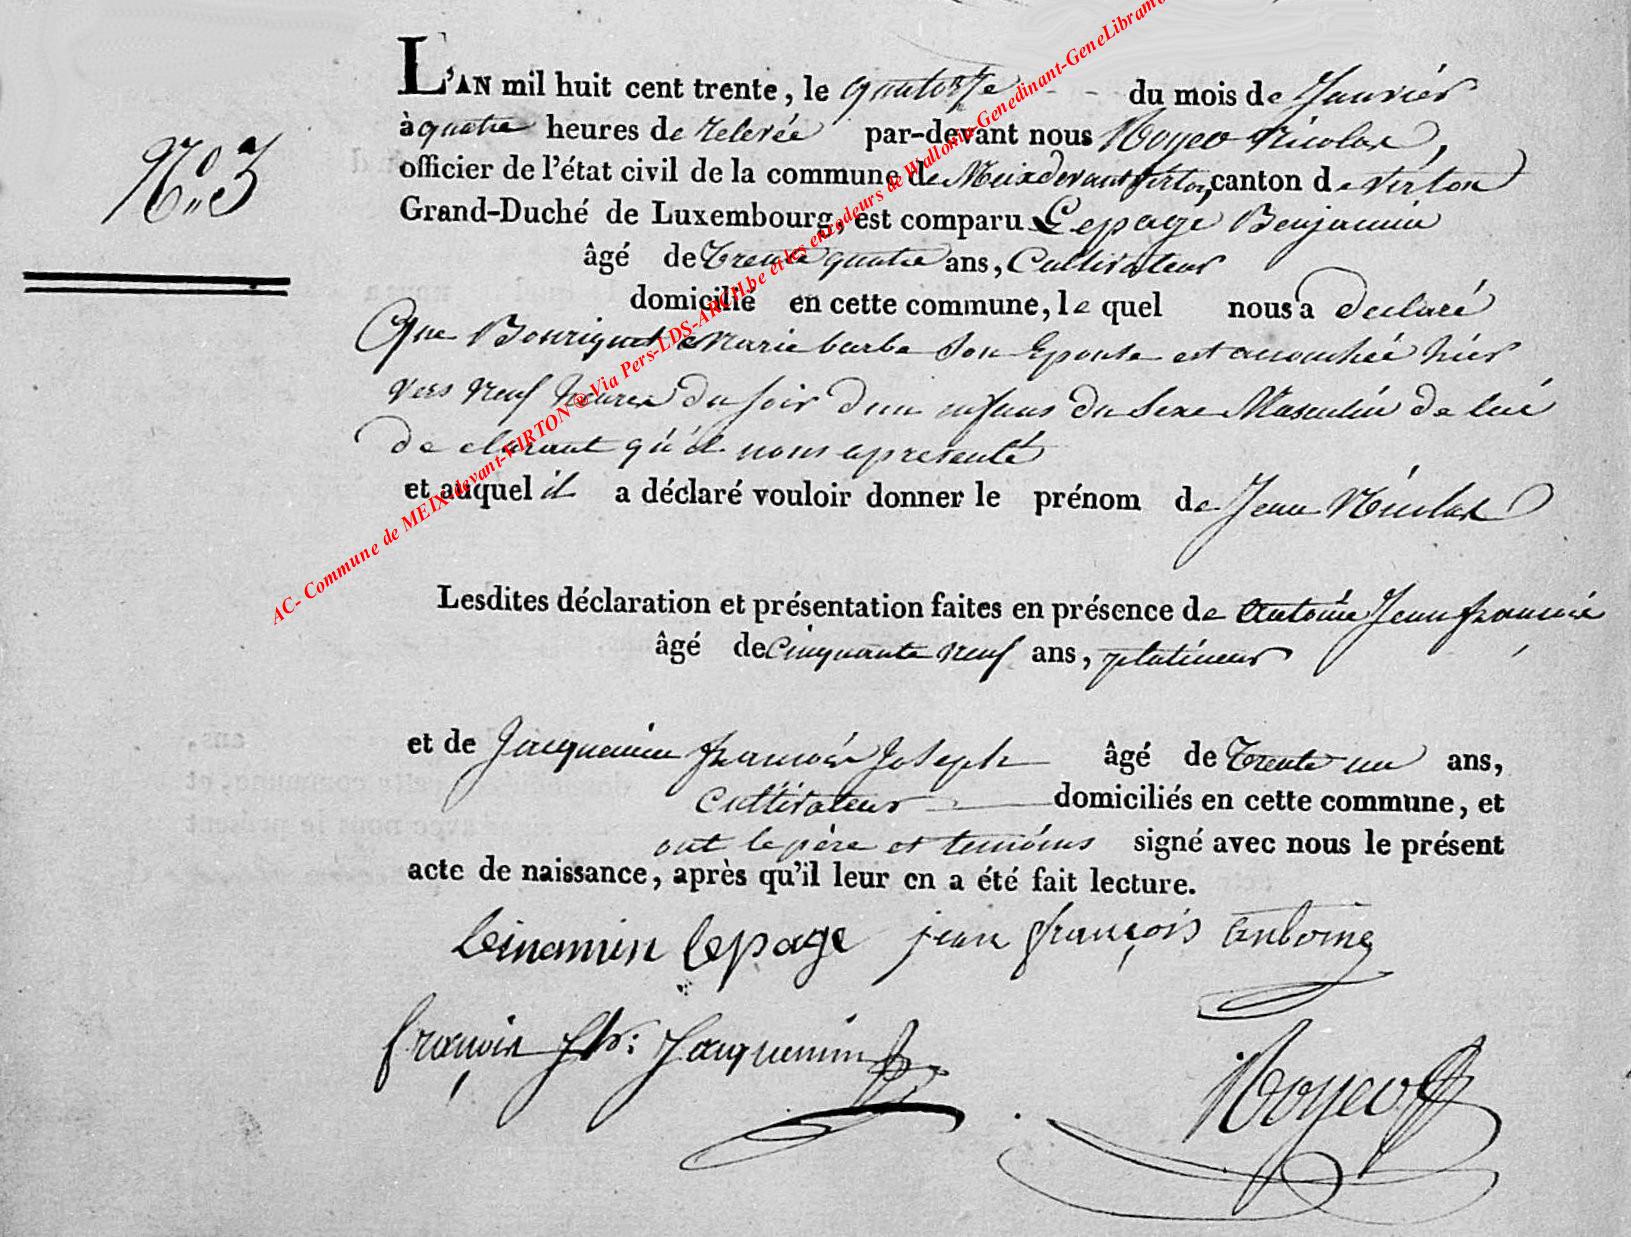 L'AN mil huit cent trente, le quatorze - - du mois de Janviér
N° 3
à quatre heures de relevée par-devant nous Noyeo Nicolas,
officier de l'état civil de la commune de Meixdevantvirton, canton de virton
Grand-Duché de Luxembourg, est comparu Lepage Benjamin
âgé de Trente quatre ans, Cultivateur
domicilié en cette commune, le quel nous a declaré
Que Bourignet Marie barbe Son Epouse est accouchée hiér
vers neuf heures du soir d'un enfans du Sexe Masculin de lui
declarant qu'il nous a presenté
et auquel il a déclaré vouloir donner le prénom de Jean Nicolas
Lesdites déclaration et présentation faites en présence de Antoine Jean francois
âgé de Cinquante neuf ans, platineur
et de Jacquemin francois Joseph âgé de Trente un ans,
Cultivateur domiciliés en cette commune, et
ont le père et temoins signé avec nous le présent
acte de naissance, après qu'il leur en a été fait lecture.
beinamin lepage jean françois antoine
françois Jh: Jacquemin
Noyeo
AC- Commune de MEIX-devant-VIRTON ® Via Pers-LDS-ARCH.be et les encodeurs de Wallonia-Genedinant-GeneLibramo